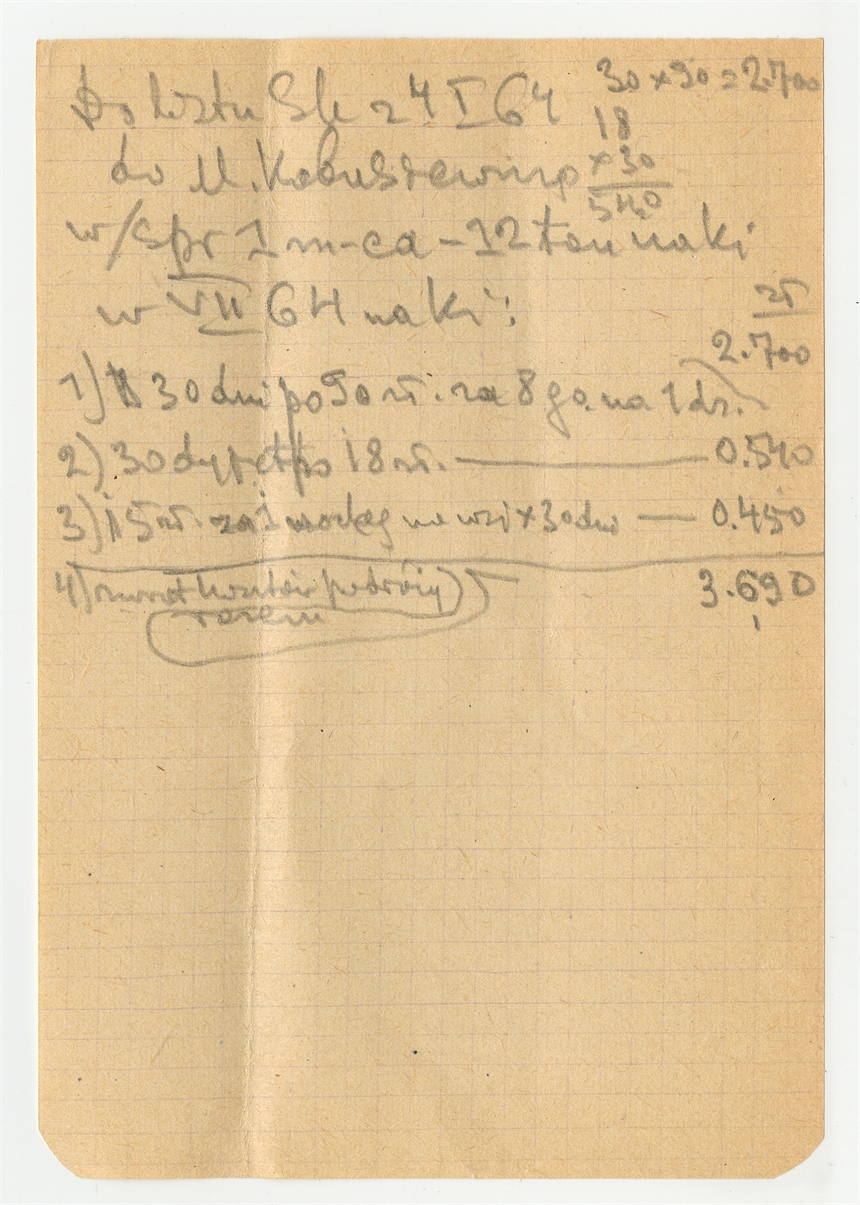 Do listu Sk z 4 I 64
30 x 90 = 2.700
18
x 30
540
do M. Kobuszewskiego
w/spr 1 m-ca - 12
w VII 64
zł
2.700
1) 30 dni po 90 zł. za 8 go. na 1 dz.
2) 30 dyjet po 18 zł. — 0.540
3) 15 zł. za 1 nocleg na wsi x 30 dni — 0.450
4) zwrot kosztów podróży
razem
3.690